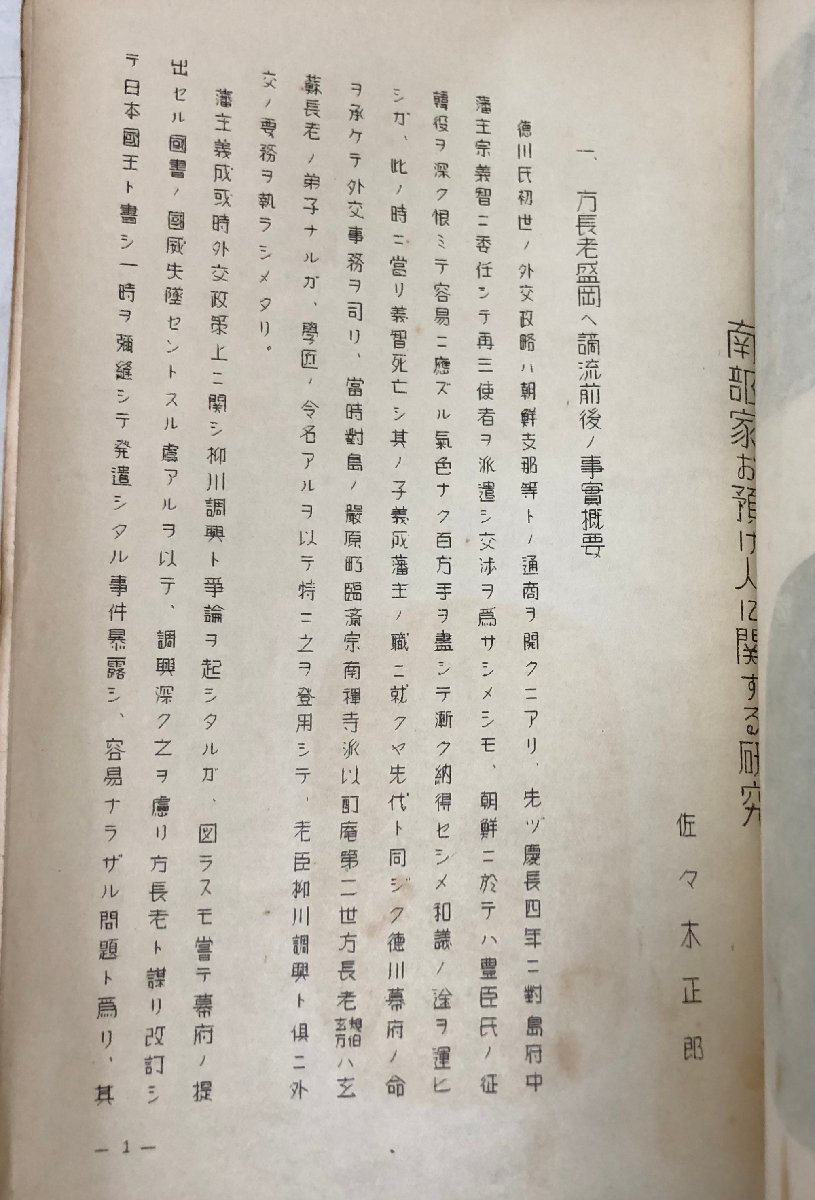 南部家お預け人に関する研究
佐々木正郎
一、方長老盛岡ヘ謫流前後ノ事實概要
徳川氏初世ノ外交政略ハ朝鮮支那等トノ通商ヲ開クニアリ、先ヅ慶長四年ニ對島府中
藩主宗義智ニ委任シテ再三使者ヲ派遣シ交渉ヲ爲サシメシモ、朝鮮ニ於テハ豊臣氏ノ征
韓役ヲ深ク恨ミテ容易ニ應ズル氣色ナク百方手ヲ盡シテ漸ク納得セシメ和議ノ途ヲ運ヒ
シガ、此ノ時ニ當リ義智死亡シ其ノ子義成藩主ノ職ニ就クヤ先代ト同ジク徳川幕府ノ命
ヲ承ケテ外交事務ヲ司リ、當時對島ノ嚴原町臨済宗南禪寺派以酊庵第二世方長老規伯玄方ハ玄
蘇長老ノ弟子ナルガ、學匠ノ令名アルヲ以テ特ニ之ヲ登用シテ、老臣柳川調興ト倶ニ外
交ノ要務ヲ執ラシメタリ。
藩主義成或時外交政策上ニ関シ柳川調興ト爭論ヲ起シタルガ、図ラスモ嘗テ幕府ノ提
出セル國書ノ國威失墜セントスル虞アルヲ以テ、調興深ク之ヲ慮リ方長老ト謀リ改訂シ
テ日本國王ト書シ一時ヲ彌縫シテ発遣シタル事件暴露シ、容易ナラザル問題ト爲リ、其
— 1 —